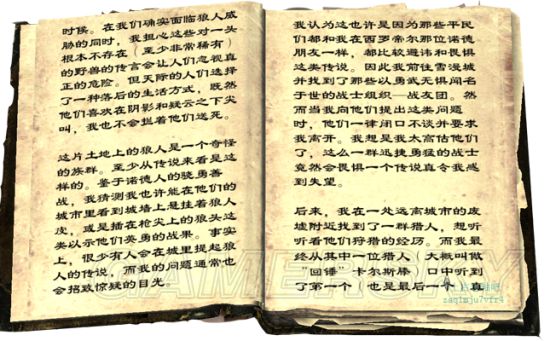 时候。在我们确实面临狼人威
胁的同时，我担心这些对一头
根本不存在（至少非常稀有）
的野兽的传言会让人们忽视真
正的危险。但天际的人们选择
了一种落后的生活方式，既然
他们喜欢在阴影和疑云之下尖
叫，我也不会拦着他们送死。
这片土地上的狼人是一个奇怪
的族群。至少从传说来看是这
样的。鉴于诺德人的骁勇善
战，我猜测我也许能在他们的
城市里看到城墙上悬挂着狼人
皮，或是插在枪尖上的狼头这
类以示他们英勇的战果。事实
上，很少有人会在城里提起狼
人的传说，而我的问题通常也
会招致惊疑的目光。
我认为这也许是因为那些平民
们都和我在西罗帝尔那位诺德
朋友一样，都比较避讳和畏惧
这类传说。因此我前往雪漫城
并找到了那些以勇武无惧闻名
于世的战士组织—战友团。然
而当我向他们提出这类问题
时，他们一律闭口不谈并要求
我离开。我想是我太高估他们
了，这么一群迅捷勇猛的战士
竟然会畏惧一个传说真令我感
到失望。
后来，我在一处远离城市的废
墟附近找到了一群猎人，想听
听看他们狩猎的经历。而我最
终从其中一位猎人 大概叫做
“回锤”卡尔斯滕 口中听到
了第一个（也是最后一个 真
GAMERSKY
zaqimju7vfr4